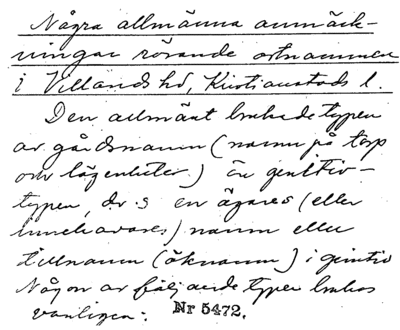 Några allmänna anmärk-
ningar rörande ortnamnen
i Villands hd, Kristianstads l.
Den allmänt brukade typen
av gårdsnamn (namn på torp
och lägenheter) är genitiv-
typen, dv.s en ägares (eller
innehavares) namn eller
tillnamn (öknamn) i genitiv
Någon av följande typer brukas
vanligen:
Nr 5472.